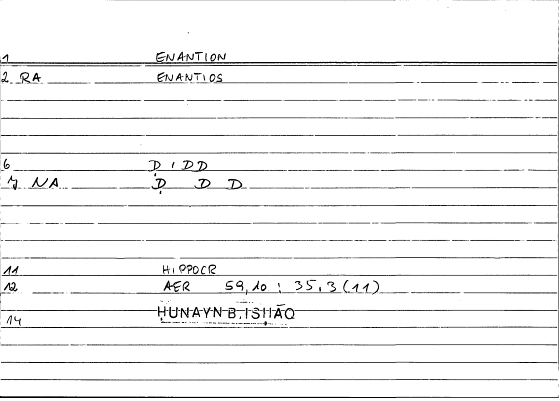 1 ENANTION
2 RA ENANTIOS
6 Ḍ I D D
7 NA Ḍ D D
11 HIPPOCR
12 AER 59,10 : 35,3 (11)
14 ḤUNAYN B. ISḤĀQ